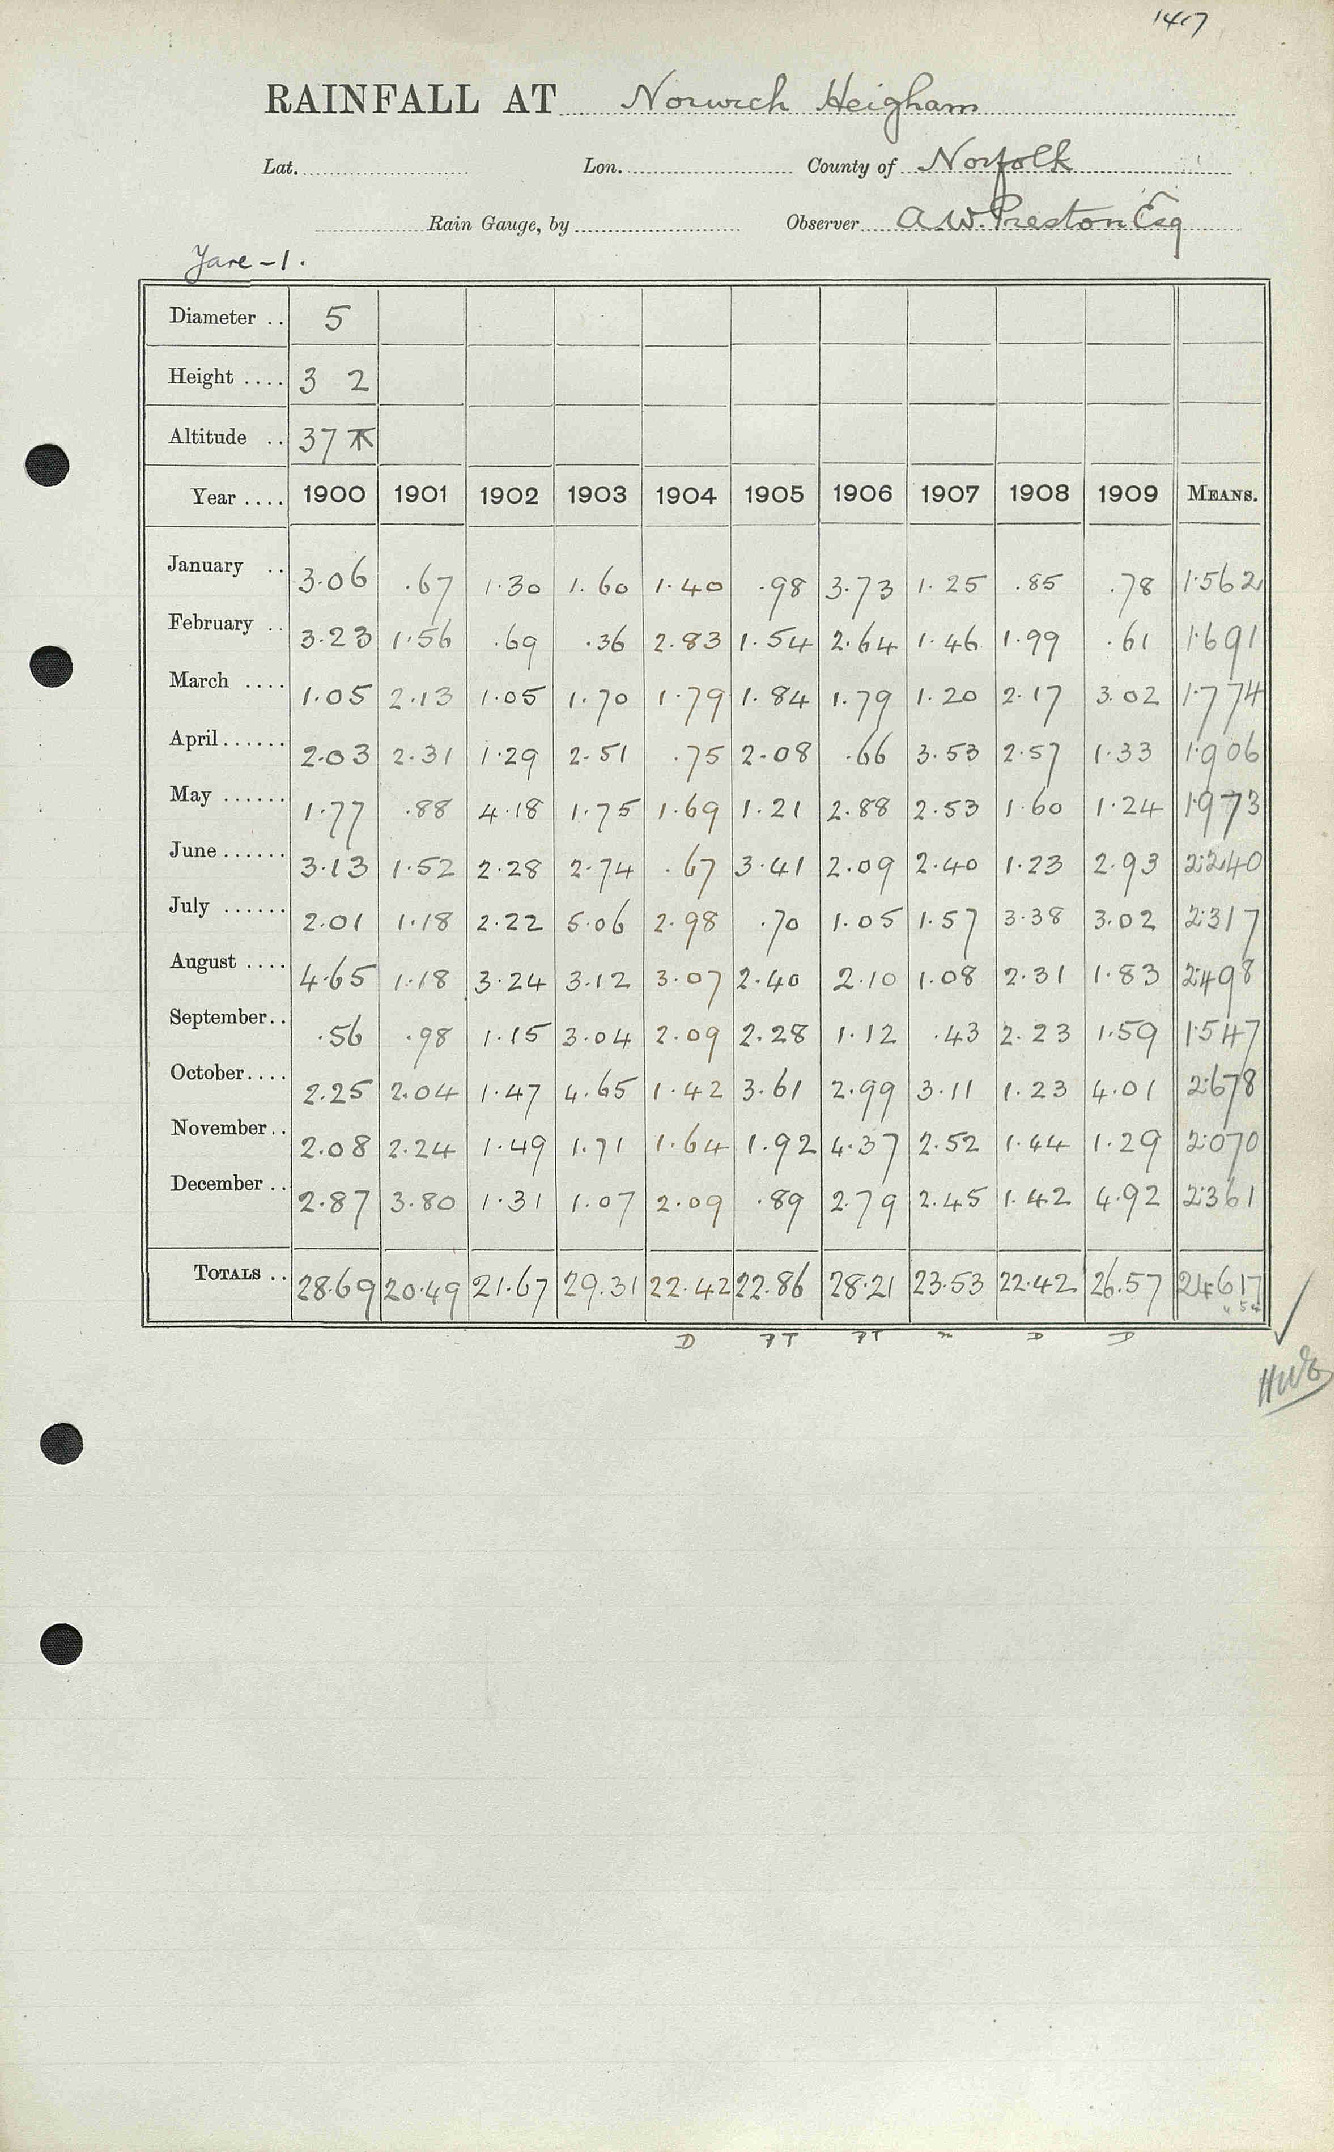 1417
RAINFALL AT Norwich Heigham
Lat. Lon. County of Norfolk
Rain Gauge, by Observer A.W. Preston Esq
Yare - 1.
Diameter .. 5
Height .... 3 2
Altitude .. 37
Year .... 1900 1901 1902 1903 1904 1905 1906 1907 1908 1909 MEANS.
January .. 3.06 .67 1.30 1.60 1.40 .98 3.73 1.25 .85 .78 1.562
February .. 3.23 1.56 .69 .36 2.83 1.54 2.64 1.46 1.99 .61 1.691
March .... 1.05 2.13 1.05 1.70 1.79 1.84 1.79 1.20 2.17 3.02 1.774
April...... 2.03 2.31 1.29 2.51 .75 2.08 .66 3.53 2.57 1.33 1.906
May ...... 1.77 .88 4.18 1.75 1.69 1.21 2.88 2.53 1.60 1.24 1.973
June...... 3.13 1.52 2.28 2.74 .67 3.41 2.09 2.40 1.23 2.93 2.240
July ...... 2.01 1.18 2.22 5.06 2.98 .70 1.05 1.57 3.38 3.02 2.317
August .... 4.65 1.18 3.24 3.12 3.07 2.40 2.10 1.08 2.31 1.83 2.498
September.. .56 .98 1.15 3.04 2.09 2.28 1.12 .43 2.23 1.59 1.547
October.... 2.25 2.04 1.47 4.65 1.42 3.61 2.99 3.11 1.23 4.01 2.678
November.. 2.08 2.24 1.49 1.71 1.64 1.92 4.37 2.52 1.44 1.29 2.070
December .. 2.87 3.80 1.31 1.07 2.09 .89 2.79 2.45 1.42 4.92 2.361
TOTALS .. 28.69 20.49 21.67 29.31 22.42 22.86 28.21 23.53 22.42 26.57 24.617
D PT PT m D D